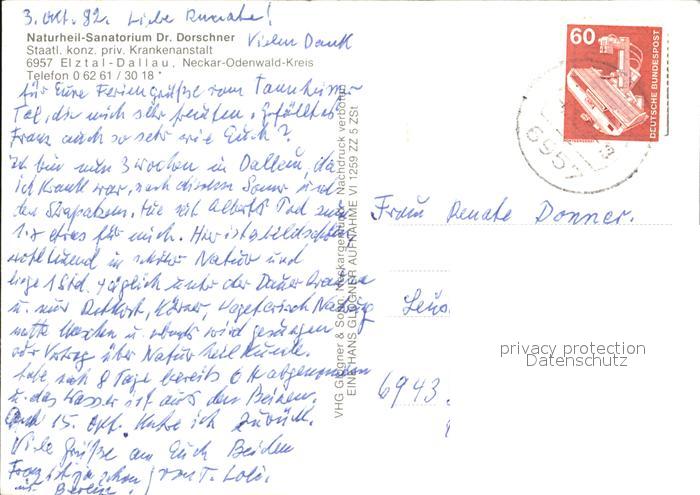 3. Okt. 82. Liebe Renate!
Naturheil-Sanatorium Dr. Dorschner
Vielen Dank
Staatl. konz. priv. Krankenanstalt
6957 Elztal-Dallau, Neckar-Odenwald-Kreis
Telefon 0 62 61 / 30 18
für Eure Feriengrüße vom Tannheimer
Tal, die mich sehr freuten. Gefällt es
Franz auch so sehr wie Euch?
Ich bin nun 3 Wochen in Dallau, da
ich krank war, nach diesem Sommer und
den Strapazen. Die seit Alberts Tod zum
1. x etwas für mich. Hier ist es bildschön
in Natur und
liege 1 Std. täglich unter der Dauer
u. nur Rohkost, Körner, Vegetarisch
u. abends wird gesungen
oder Vortrag über Naturheilkunde.
Habe nach 8 Tage bereits 6 K abgenommen
u. das Wasser ist aus den Beinen.
15. Okt. kehre ich zurück.
Viele Grüße an Euch Beiden
Franz ist ja schon von T. Loli.
in Berlin.
VHG Glögner & Sohn, Neckargerach Nachdruck verboten
EINE HANS GLÖGNER AUFNAHME VI 1259 ZZ 5 ZSt
60
DEUTSCHE BUNDESPOST
6957
Frau Renate Donner.
6943
privacy protection
Datenschutz